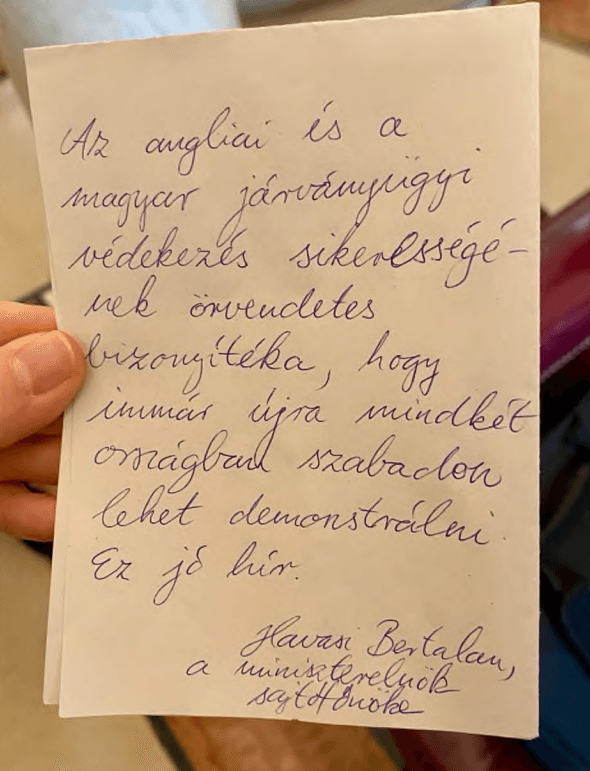 Az angliai és a
magyar járványügyi
védekezés sikerességé-
nek örvendetes
bizonyítéka, hogy
immár újra mindkét
országban szabadon
lehet demonstrálni.
Ez jó hír.
Havasi Bertalan,
a miniszterelnök
sajtófőnöke